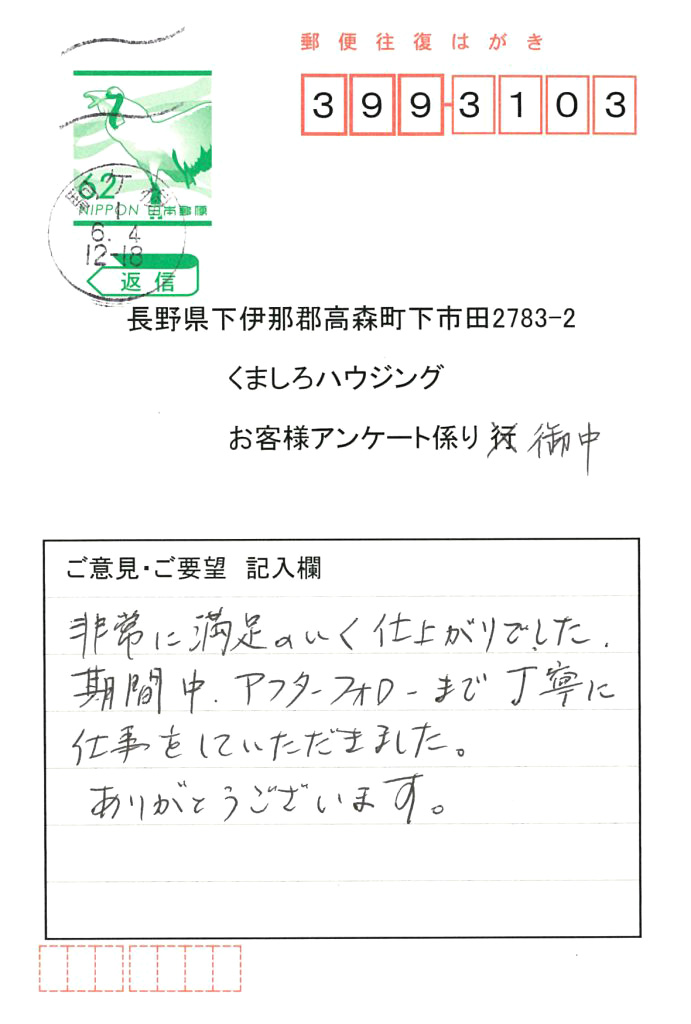 郵便往復はがき
399-3103
62
NIPPON 日本郵便
6. 4
12-18
返信
長野県下伊那郡高森町下市田2783-2
くましろハウジング
お客様アンケート係り 行 御中
ご意見・ご要望 記入欄
非常に満足のいく仕上がりでした.
期間中.アフターフォローまで丁寧に
仕事をしていただきました。
ありがとうございます。